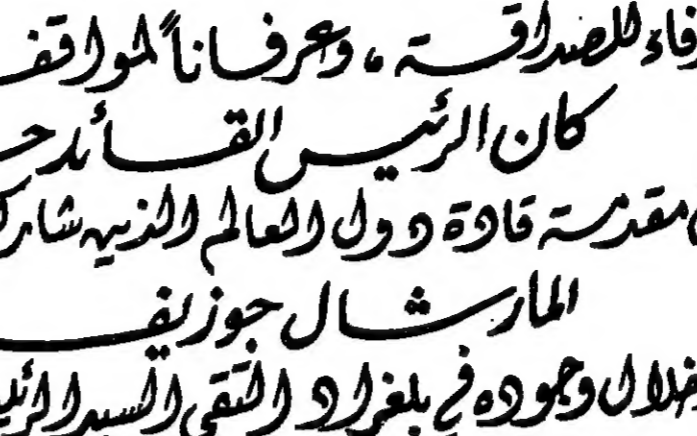 فاء للصداقة ، وعرفاناً لمواقف
كان الرئيس القائد حـ
مقدمة قادة دول العالم الذين شارك
المارشال جوزيف
خلال وجوده في بلغراد التقى السيد الرئيـ